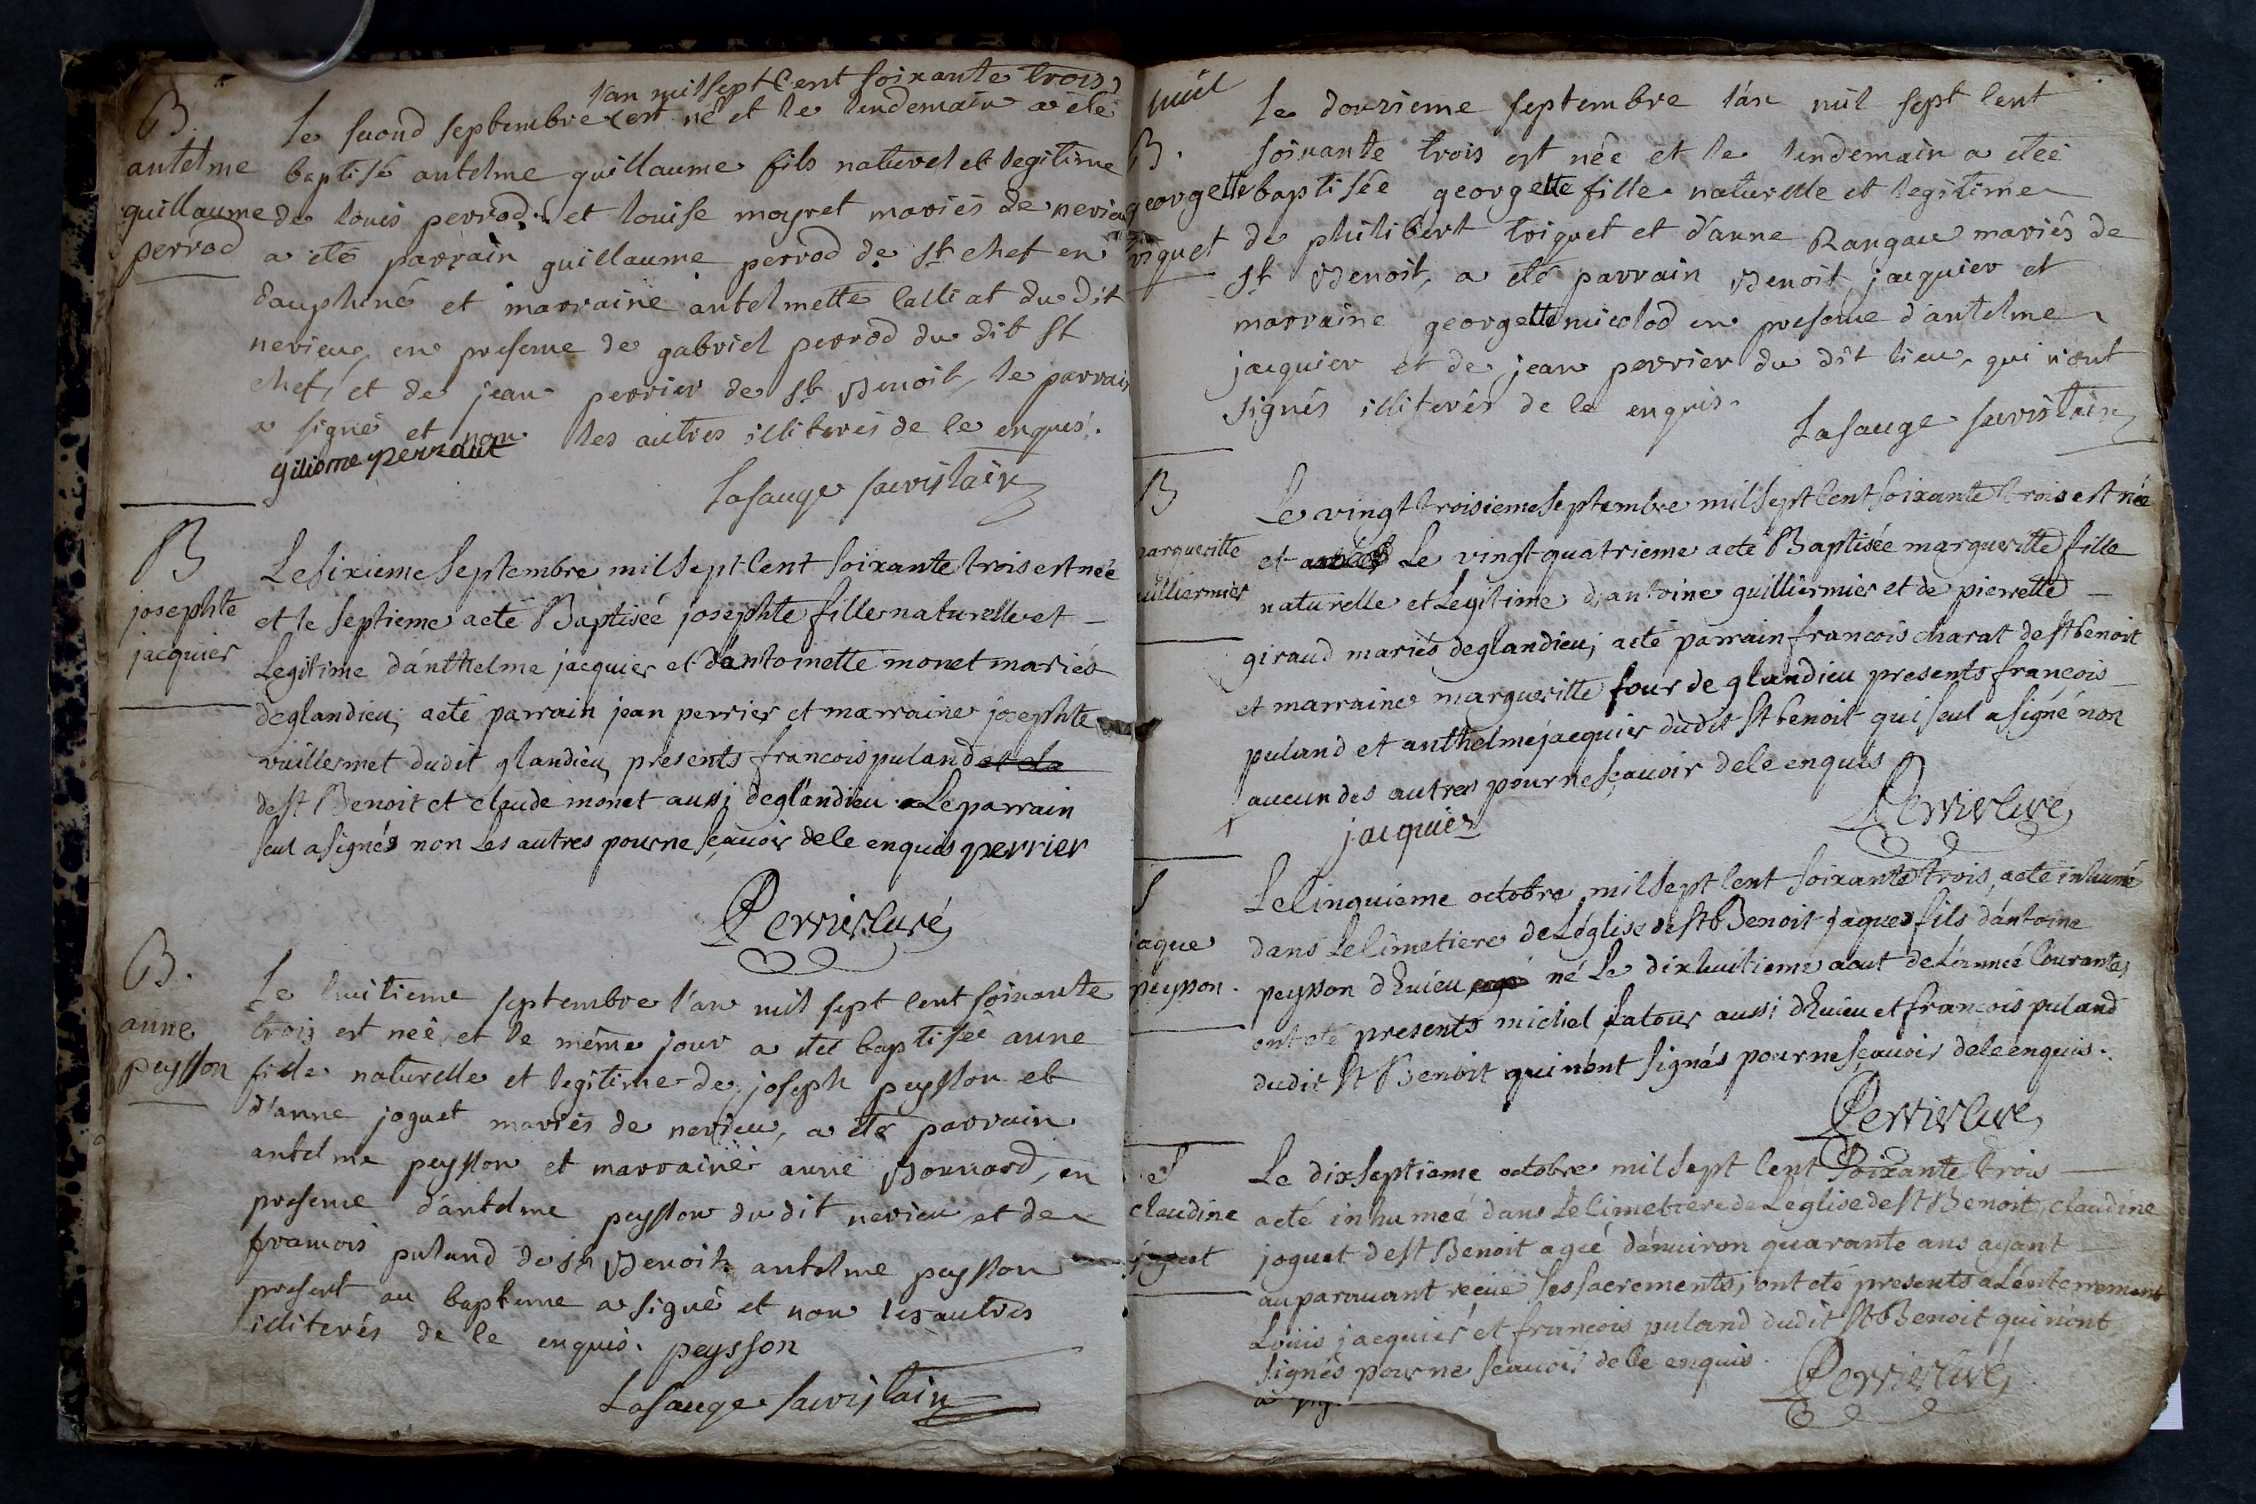 l'an mil sept cent soixante trois
B.
antelme
guillaume
perrod
le second septembre est né et le lendemain a été
baptisé antelme guillaume fils naturel et legitime
de louis perrod et louise moyret mariés de nerieu
a été parrain guillaume perrod de st chef en
dauphiné et marraine antelmette calliat du dit
nerieu, en presence de gabriel perrod du dit st
chef, et de jean perrier de st Benoit, le parrain
a signé et non les autres illiterés de le enquis.
giliome perraut
Lasauge sacristain
B
josephte
jacquier
Le sixieme septembre mil sept cent soixante trois est née
et le septieme a eté Baptiséé josephte fille naturelle et
Legitime d'anthelme jacquier et d'antoinette monet mariés
de glandieu; a eté parrain jean perrier et marraine josephte
vuillermet dudit glandieu presents francois puland et cla
de st Benoit et claude monet aussi de glandieu Le parrain
seul a signés non Les autres pour ne sçavoir de le enquis perrier
Perrier curé
B.
anne
peysson
le huitieme septembre l'an mil sept cent soixante
trois est neé, et le même jour a eté baptiseé anne
fille naturelle et legitime de joseph peysson et
d'anne joguet mariés de nerieu, a eté parrain
antelme peysson et marraine anne Bonnard, en
presence d'antelme peysson du dit nerieu et de
francois puland de st Benoit antelme peysson
present au bapteme a signé et non les autres
illiterés de le enquis. peysson
Lasauge sacristain
B.
georgette
triquet
le douzieme septembre l'an mil sept cent
soixante trois est née et le lendemain a eteé
baptisée georgette fille naturelle et legitime
de philibert triquet et d'anne Rangau mariés de
st Benoit, a eté parrain Benoit jacquier et
marraine georgette nicolod en presence d'antelme
jacquier et de jean perrier du dit lieu, qui n'ont
signés illiterés de le enquis.
Lasauge sacristain
B
margueritte
guilliermier
Le vingt troisieme septembre mil sept cent soixante trois est née
et Le vingt quatrieme a eté Baptisée margueritte fille
naturelle et Legitime d'antoine guilliermier et de pierrette
giraud mariés de glandieu; a eté parrain francois charat de st benoit
et marraine margueritte four de glandieu presents françois
puland et anthelme jacquier dudit st benoit qui seul a signé non
aucun des autres pour ne sçavoir de le enquis
jacquier
Perrier curé
S
jaque
peysson.
Le cinquieme octobre mil sept cent soixante trois, a eté inhumé
dans Le cimetiere de L'église de st Benoit jaques fils d'antoine
peysson d'huieu né Le dixhuitieme aout de L'année Courante,
ont eté presents michel Latour aussi d'huieu et francois puland
dudit st Benoit qui n'ont signés pour ne sçavoir de le enquis.
Perrier curé
S
claudine
joguet
Le dixseptieme octobre mil sept cent soixante trois
a eté inhumeé dans Le cimetiere de Leglise de st Benoit, claudine
joguet de st Benoit ageé d'enuiron quarante ans ayant
auparavant reçue ses sacrements, ont eté presents a L'enterrement
Louis jacquier et francois puland dudit st Benoit qui n'ont
signés pour ne scauoir de le enquis.
Perrier curé